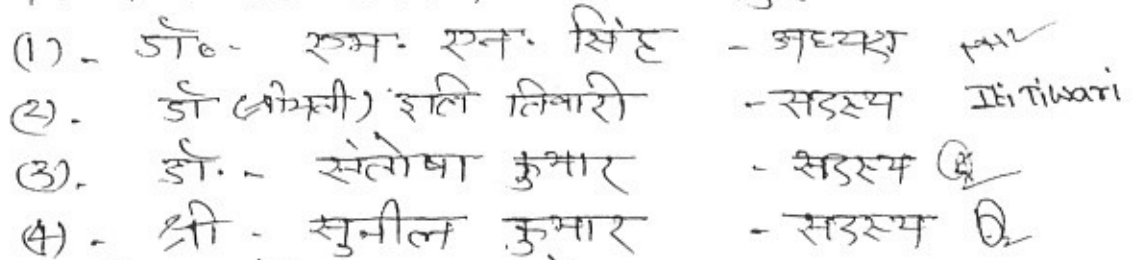 (1). डॉ. - एम. एन. सिंह - अध्यक्ष
(2). डॉ (श्रीमती) इति तिवारी - सदस्य Iti Tiwari
(3). डॉ. - संतोष कुमार - सदस्य
(4) - श्री - सुनील कुमार - सदस्य